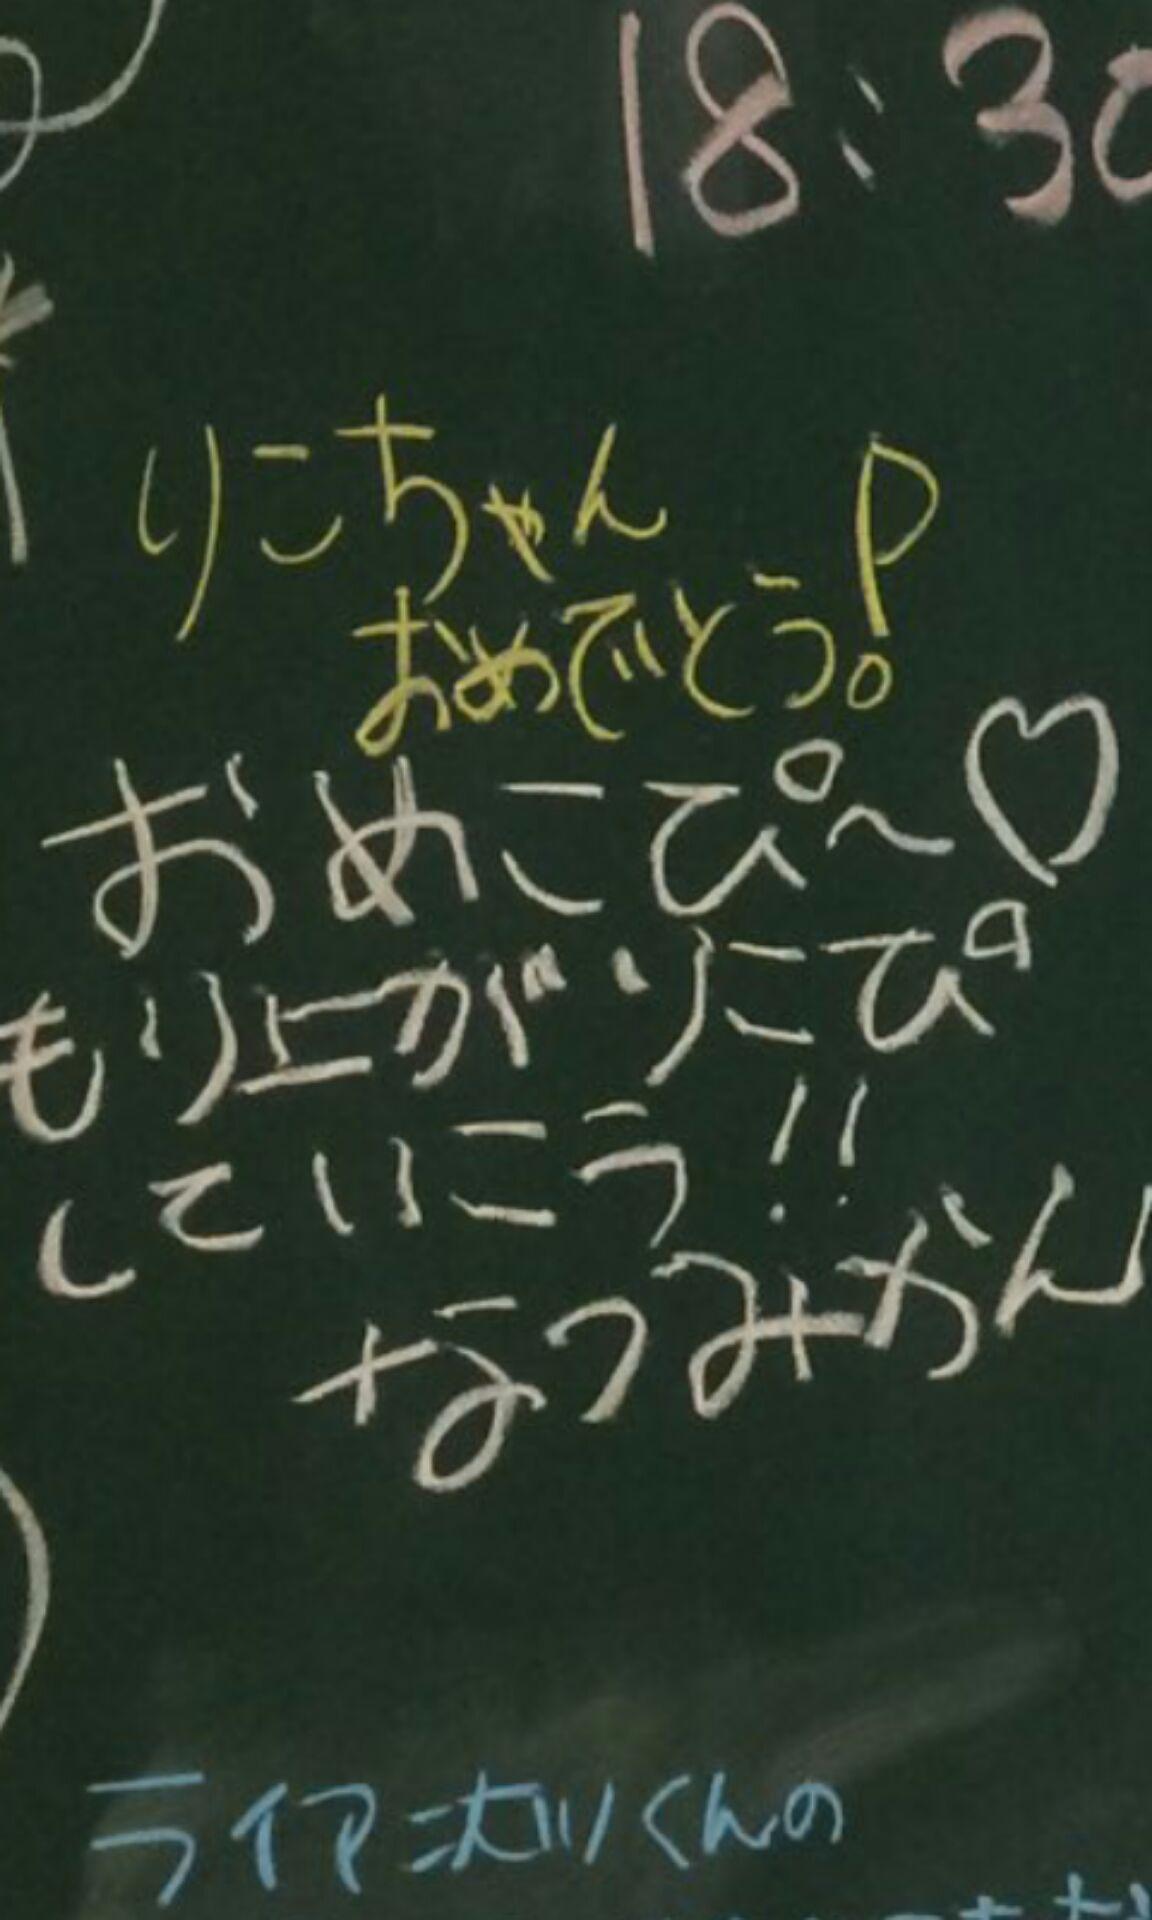 18:30
りこちゃん
おめでとう!
おめこぴ〜♡
もり上がりこぴ
していこう!!
なつみかん
ライアン大川くんの